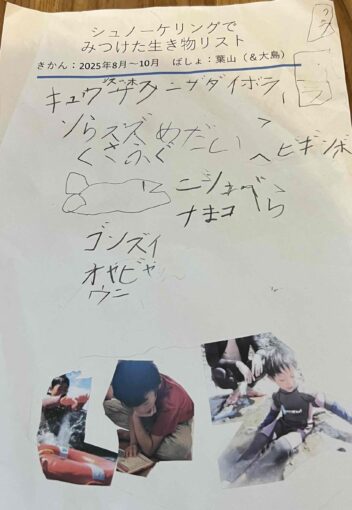 シュノーケリングで
みつけた生き物リスト
きかん：2025年8月～10月　ばしょ：葉山（＆大島）
キュウ
ニザダイ ボラ
ソラスズめだい
くさふぐ
ヘビギンポ
ニシキべら
ナまコ
ゴンズイ
オヤビ
ウニ